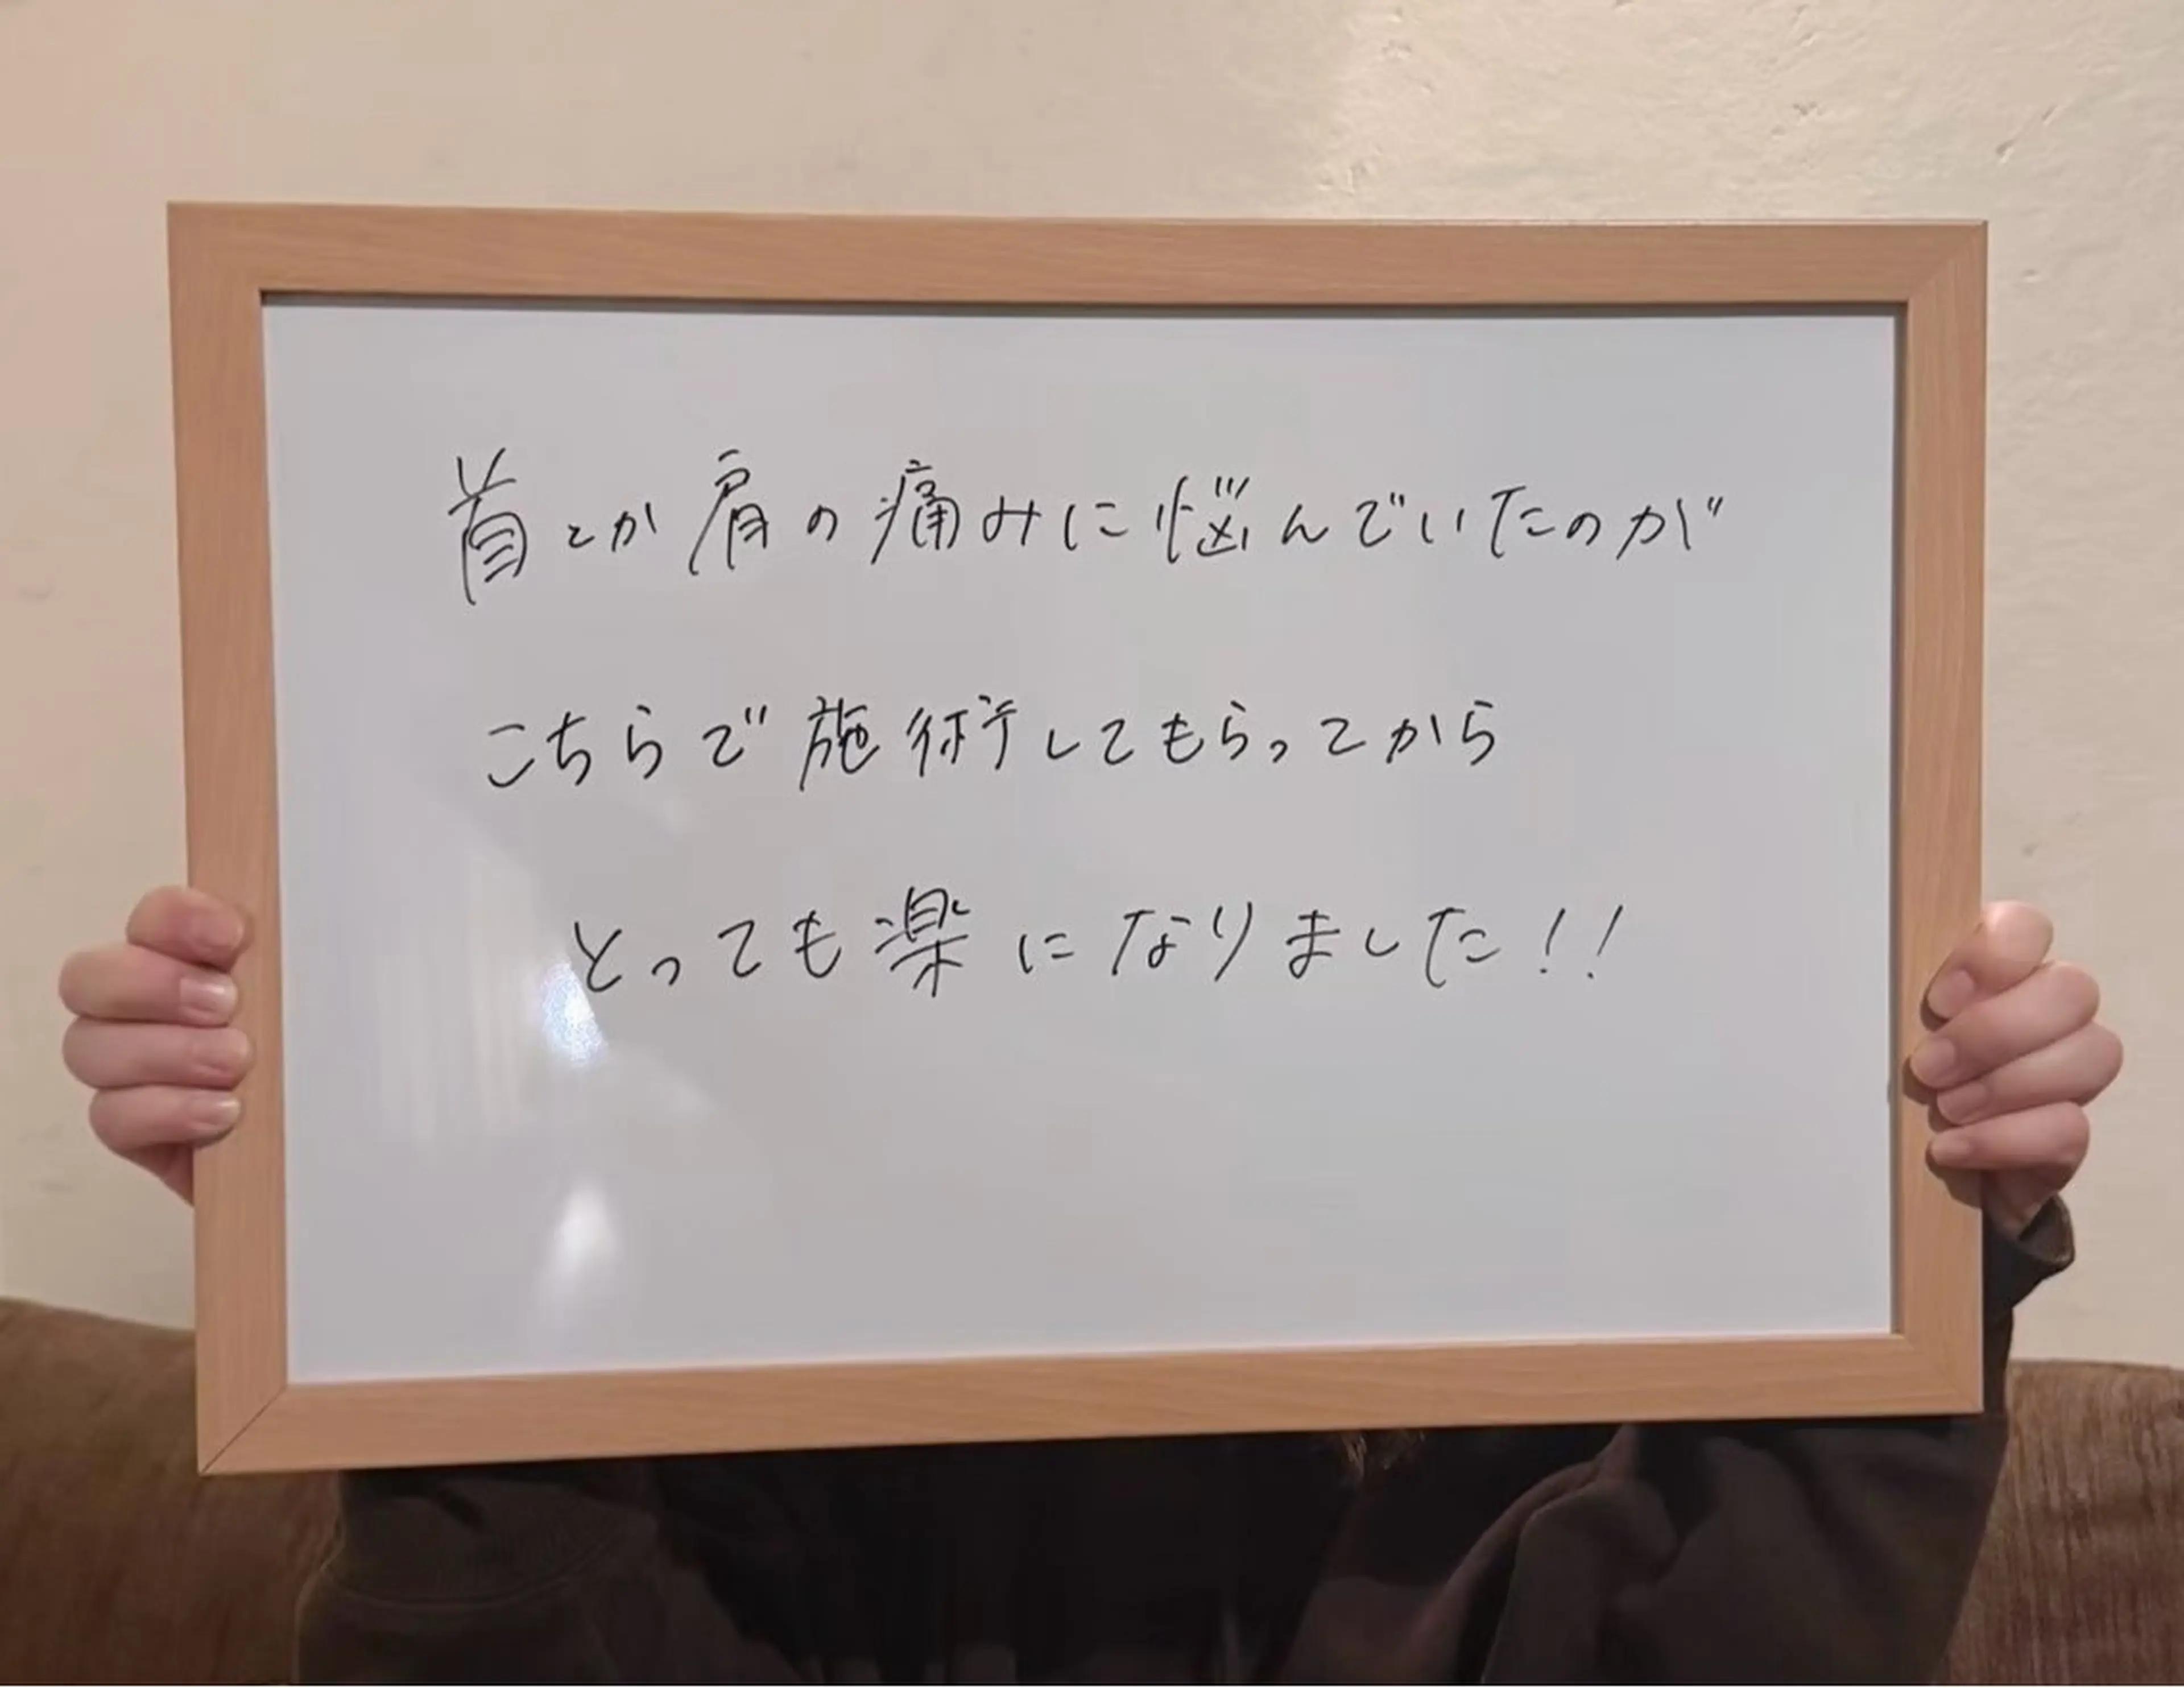 首とか肩の痛みに悩んでいたのが
こちらで施術してもらってから
とっても楽になりました!!